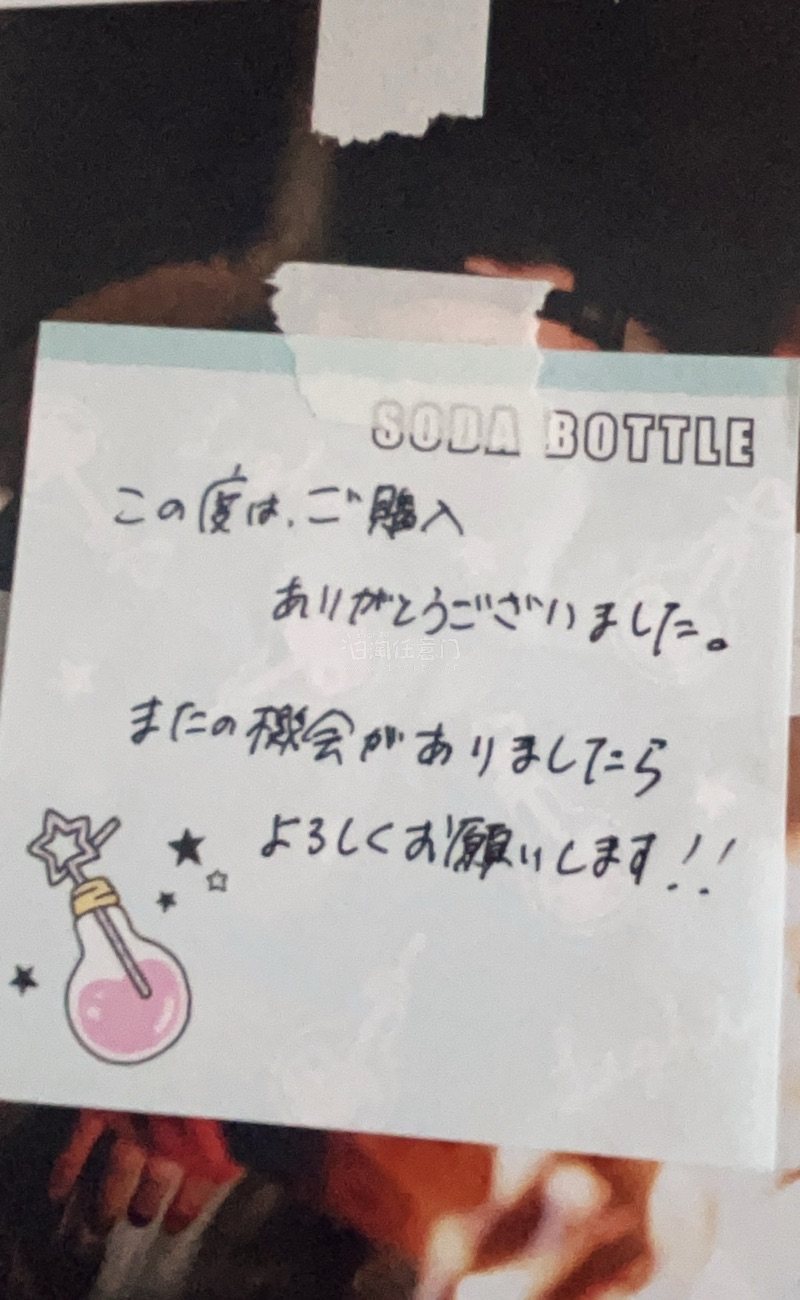 SODA BOTTLE
この度は、ご購入
ありがとうございました。
またの機会がありましたら
よろしくお願いします!!